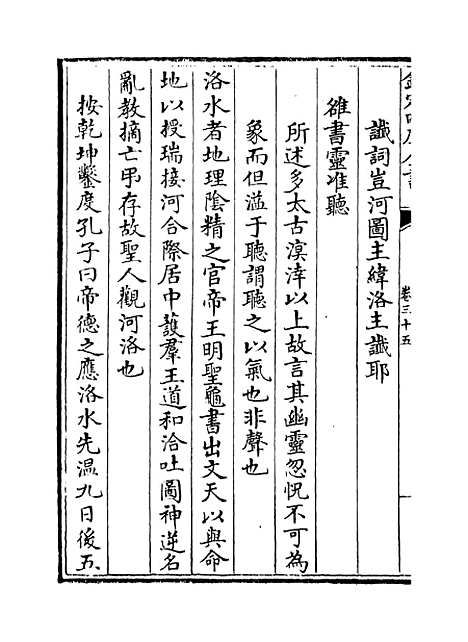 欽定四庫全書
卷三十五
讖詞豈河圖主緯洛主讖耶
雒書靈准聽
所述多太古溟涬以上故言其幽靈忽怳不可為
象而但滋于聽謂聽之以氣也非聲也
洛水者地理陰精之官帝王明聖龜書出文天以與命
地以授瑞接河合際居中䕶羣王道和洽吐圖神逆名
亂教摘亡弔存故聖人觀河洛也
按乾坤鑿度孔子曰帝德之應洛水先温九日後五